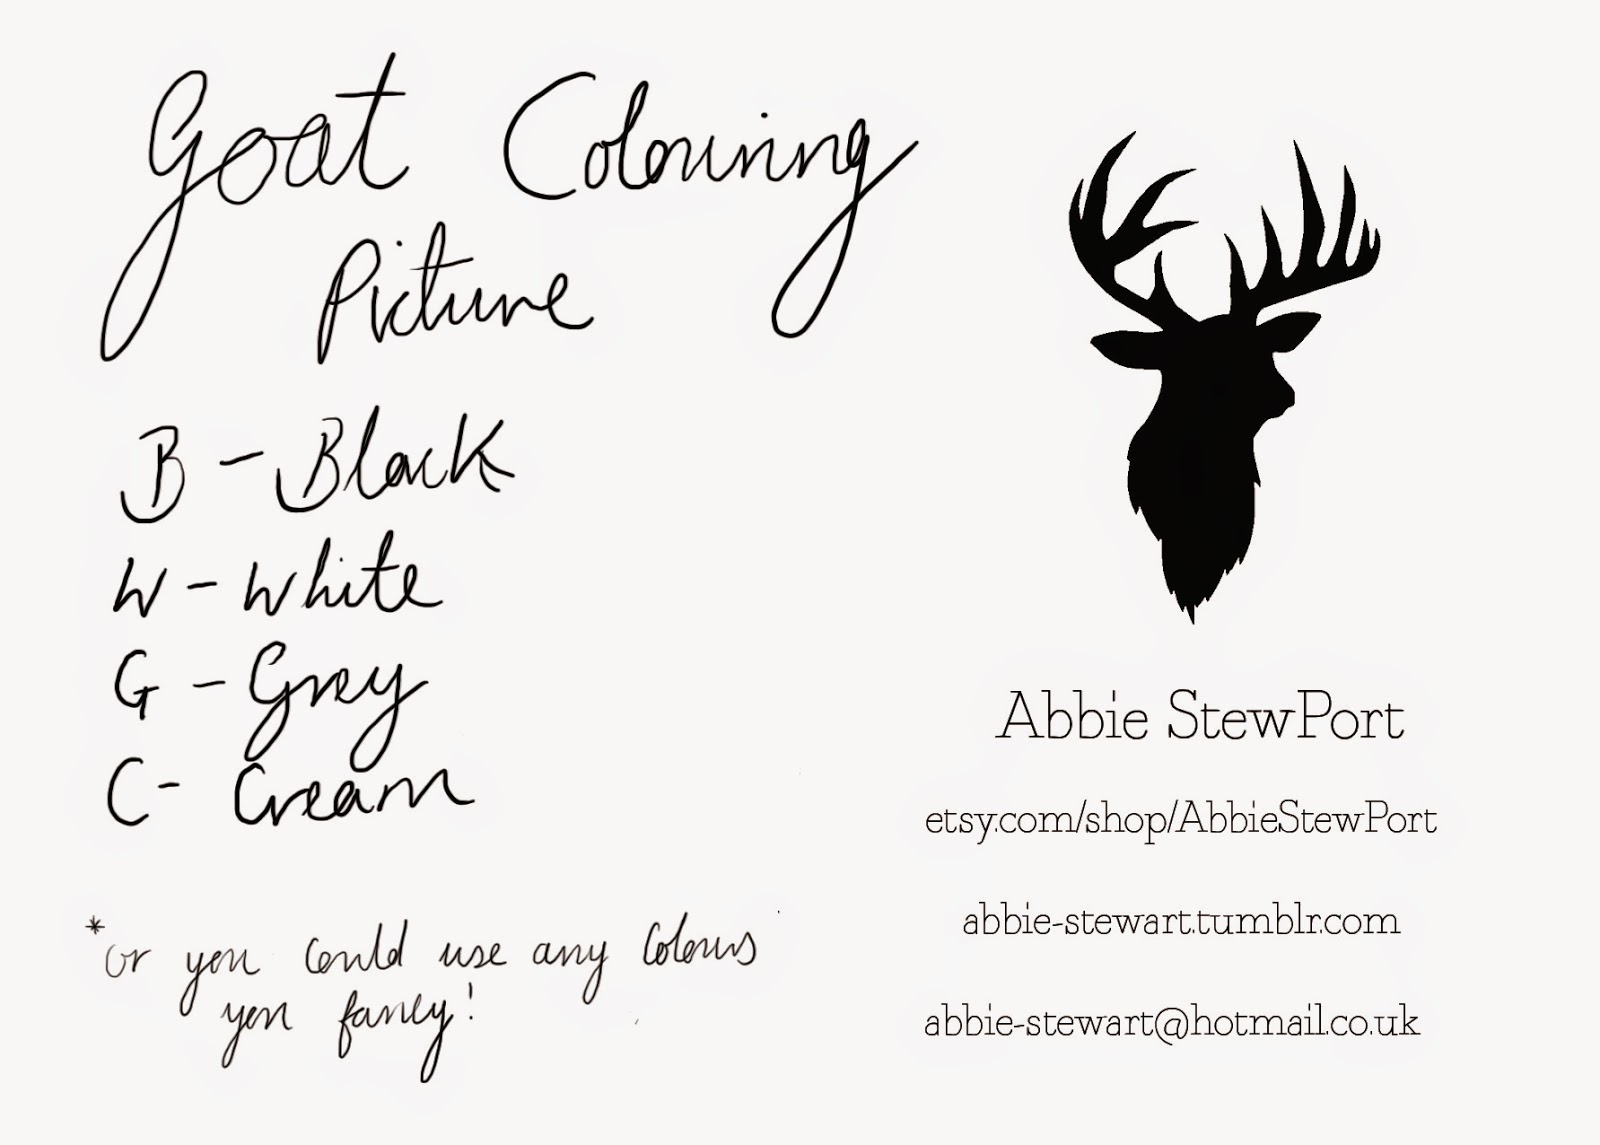 Goat Colouring
Picture
B - Black
W - White
G - Grey
C - Cream
*or you could use any colours
you fancy!
Abbie StewPort
etsy.com/shop/AbbieStewPort
abbie-stewart.tumblr.com
abbie-stewart@hotmail.co.uk